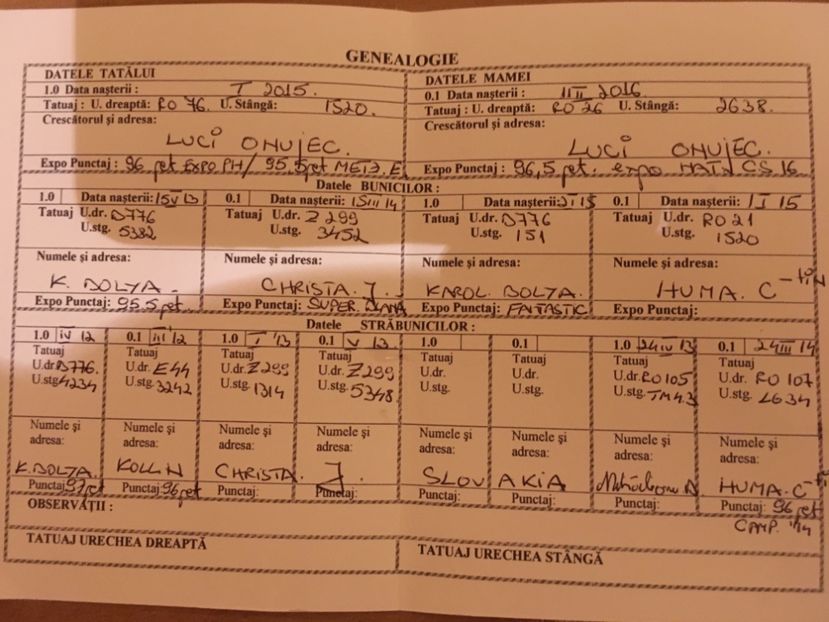 GENEALOGIE
DATELE TATĂLUI
1.0 Data nașterii : I 2015.
Tatuaj : U. dreaptă: RO 76. U. Stângă: 1520.
Crescătorul și adresa:
LUCI ONUJEC.
Expo Punctaj : 96 pct EXPO PH/ 95,5 pct
DATELE MAMEI
0.1 Data nașterii : III 2016.
Tatuaj : U. dreaptă: RO 26 U. Stângă: 2638.
Crescătorul și adresa:
LUCI ONUJEC.
Expo Punctaj : 96,5 pct. expo CS 16
Datele BUNICILOR :
1.0 Data nașterii: 15 IV 13
Tatuaj U.dr. D776
U.stg. 5382
Numele și adresa:
K. BOLYA.
Expo Punctaj: 95.5 pct.
0.1 Data nașterii: 15 III 14
Tatuaj U.dr. Z 299
U.stg. 3452
Numele și adresa:
CHRISTA. J.
Expo Punctaj: SUPER. BLANA
1.0 Data nașterii: 15
Tatuaj U.dr. D776
U.stg. 151
Numele și adresa:
KAROL. BOLYA.
Expo Punctaj: FANTASTIC
0.1 Data nașterii: 1 I 15
Tatuaj U.dr. RO 21
U.stg. 1520
Numele și adresa:
HUMA. C-tin
Expo Punctaj:
Datele STRĂBUNICILOR :
1.0 IV 12
Tatuaj
U.dr. D776.
U.stg. 4234
Numele și
adresa:
K. BOLYA.
Punctaj: 97 pct
0.1 III '12
Tatuaj
U.dr. E44
U.stg. 3242
Numele și
adresa:
KOLLN
Punctaj: 96 pct
1.0 I '13
Tatuaj
U.dr. Z 299
U.stg. 1314
Numele și
adresa:
CHRISTA.
Punctaj:
0.1 V 13.
Tatuaj
U.dr. Z299
U.stg. 5348
Numele și
adresa:
J.
Punctaj:
1.0
Tatuaj
U.dr.
U.stg.
Numele și
adresa:
SLOVAKIA
Punctaj:
0.1
Tatuaj
U.dr.
U.stg.
Numele și
adresa:
Punctaj:
1.0 24 IV 13
Tatuaj
U.dr. RO 105
U.stg. TM43
Numele și
adresa:
Punctaj:
0.1 24 III 14
Tatuaj
U.dr. RO 107
U.stg. LG34
Numele și
adresa:
HUMA. C-tin
Punctaj: 96 pct
CAMP. '14
OBSERVAȚII :
TATUAJ URECHEA DREAPTĂ
TATUAJ URECHEA STÂNGĂ